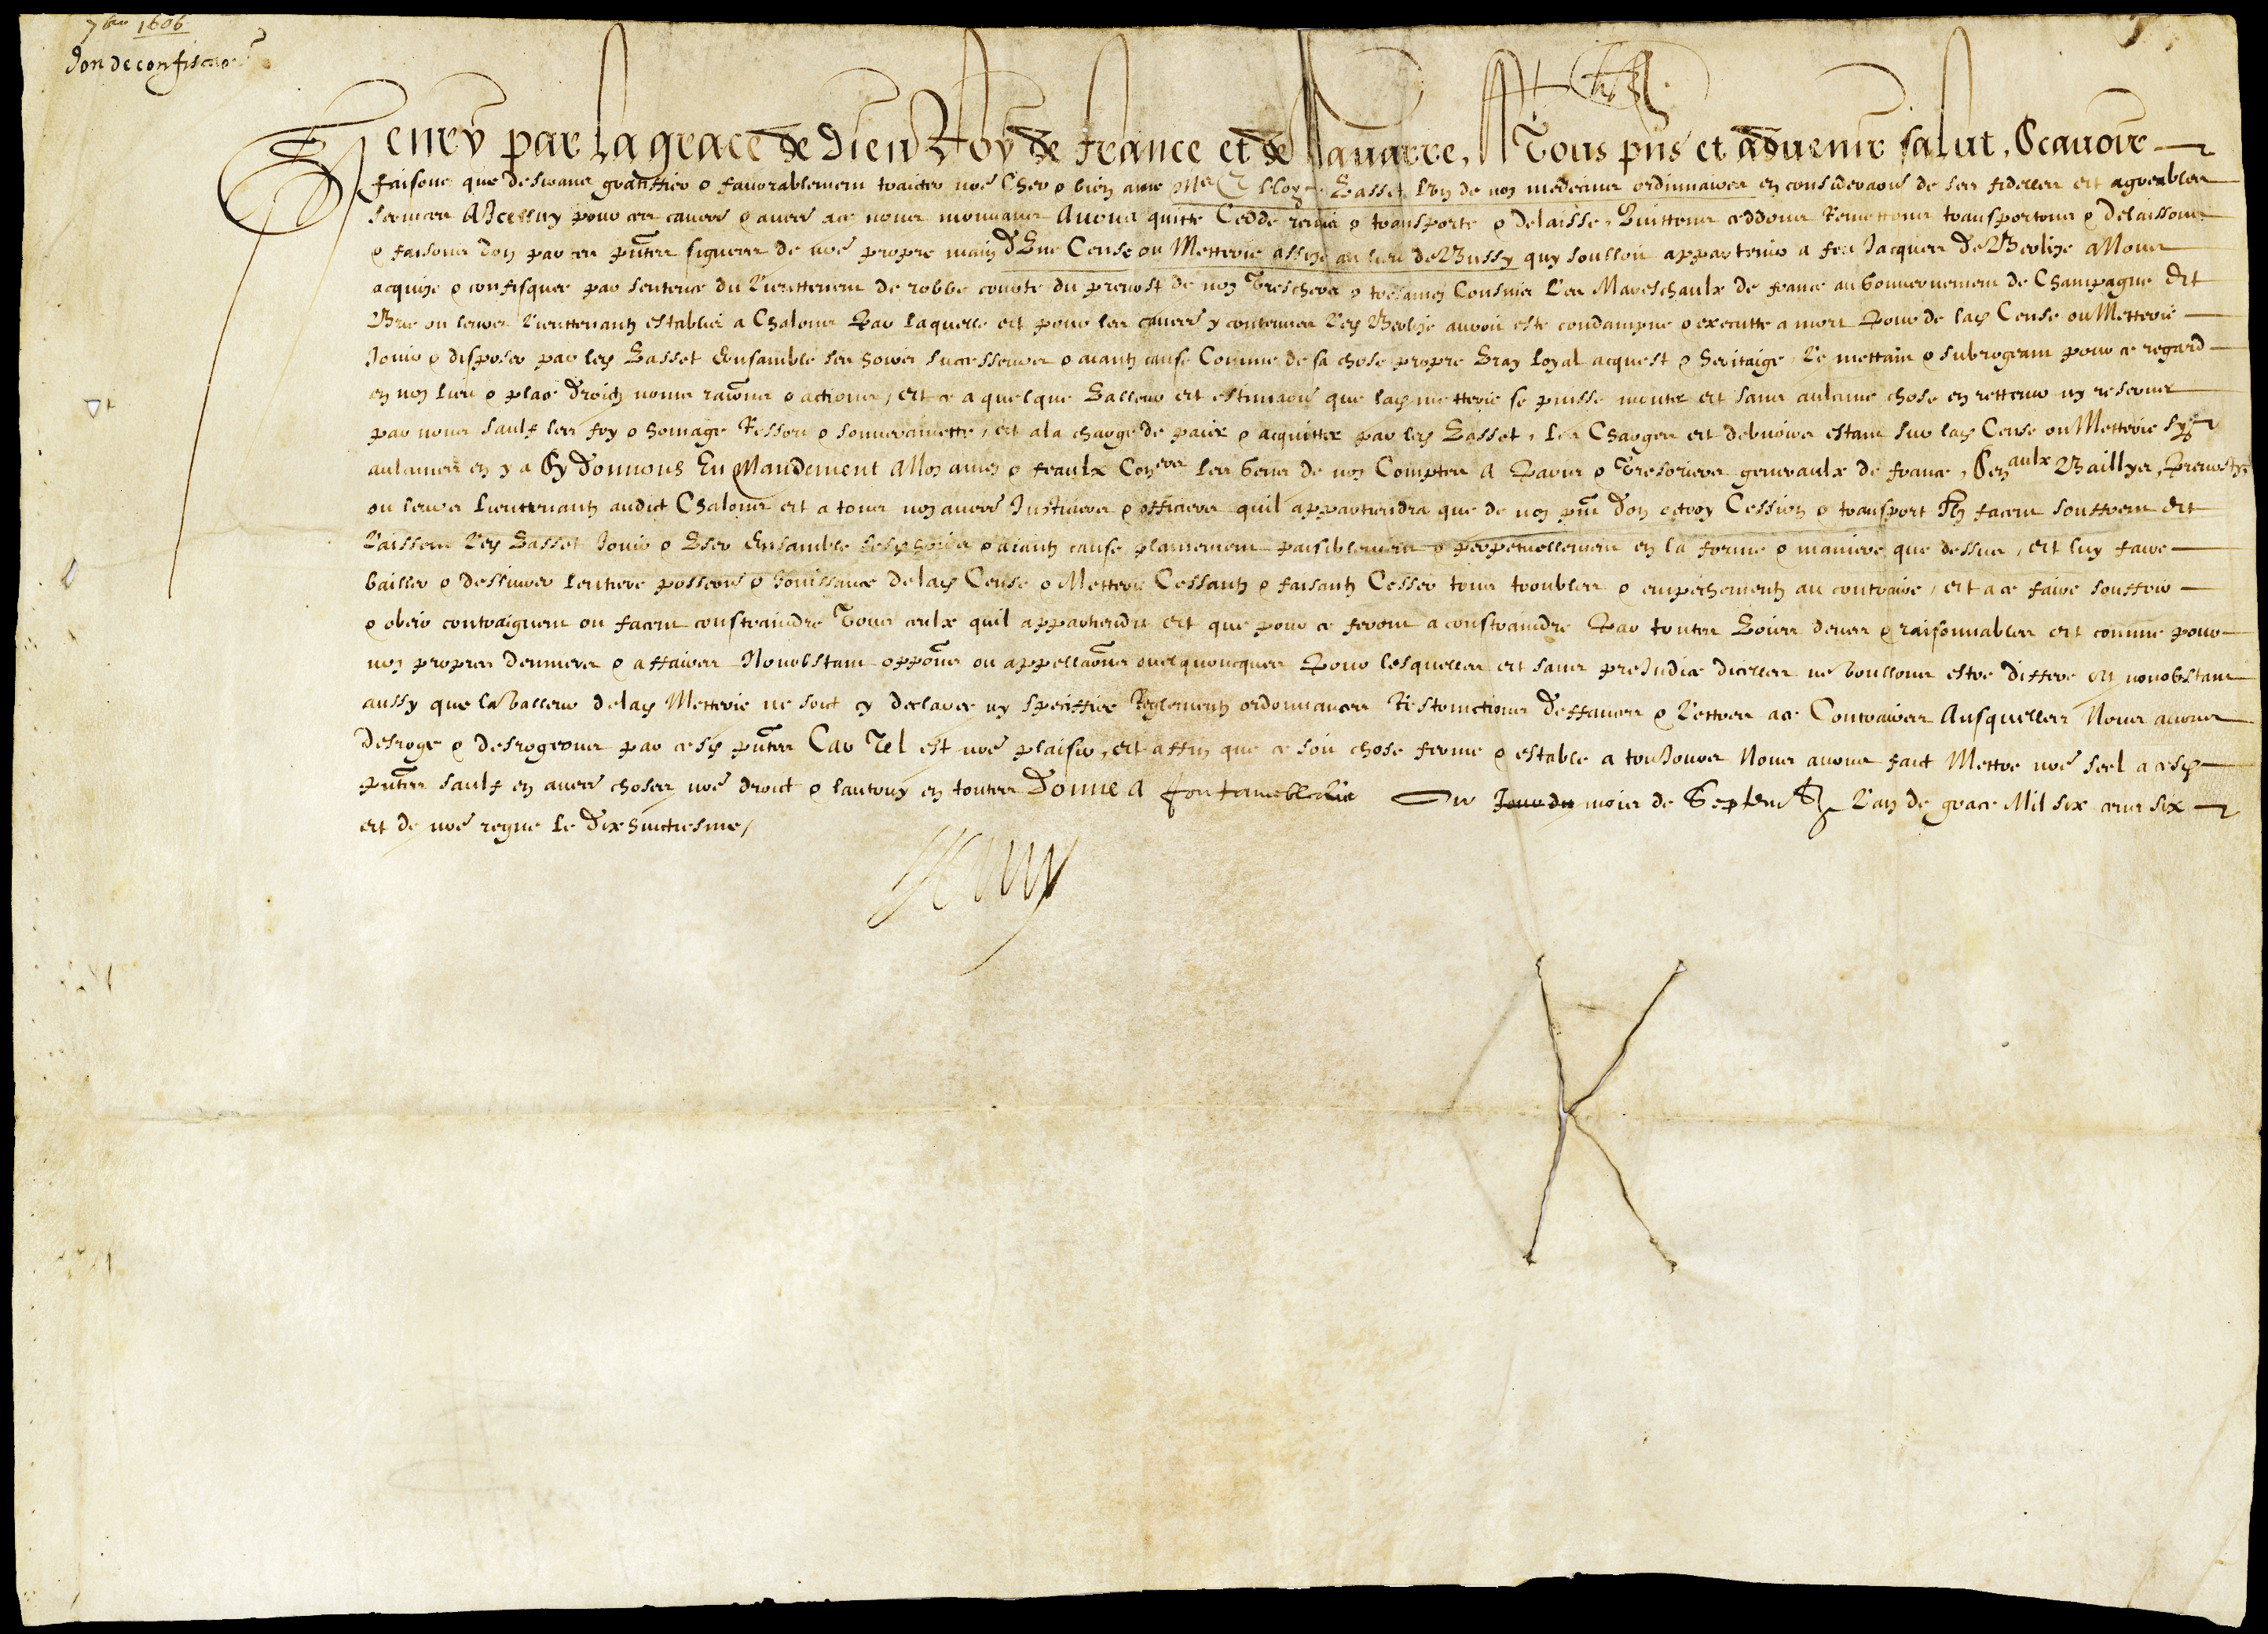 7bre 1606
Don de confiscaon
Henry par la grace de Dieu Roy de france et de Navarre, A Tous pns et advenir salut, Scavoir
faisons que desirans gratiffier & favorablement traicter nre Cher & bien ame Me Basset Lun de noz medecins ordinnaires en consideraon de ses fidelles et agreables
services A Icelluy pour ces causes & aures ace nous mouvans Avons quitte Cedde remis & transporte & delaisse, Quittons ceddons Remettons transportons & delaissons
& faisons don par ces pntes signees de nre propre main d'Une Cense ou Metterie assize au lieu de Bussy quy soulloit appartenir a feu Jacques de Beolize A Nous
acquize & confisquee par sentence du Lieuttenent de robbe courte du prevost de noz Treschers & tresamez Cousins Les Mareschaulx de france au Gouvernement de Champagne Et
Brie ou leurs Lieuttenantz establis a Chalons Par laquelle et pour les causes y contenues Led Beolize auroit este condampne & execute a mort Pour de lad Cense ou Metterie
Jouir & disposer par led Basset Ensamble ses hoirs successeurs & aiantz cause Comme de sa chose propre Vray loyal acquest & heritaige, Le mettant & subrogeant pour ce regard
en nos lieu & place droictz noms raisons & actions, Et ce a quelque valleur et estimaon que lad metterie se puisse monter et sans aulcune chose en rettenir ny reserver
par nous saulf les foy & homage Ressort & souveraineté, et ala charge de paier & acquitter par led Basset, Les Charges et debvoirs estans sur lad Cense ou Metterie Sy
aulcunes en y a Sy Donnons En Mandement A Noz amez & feaulx Coners les Gens de noz Comptes A Paris & Tresoriers generaulx de france, Senaulx Baillys, Prevostz
ou leurs Lieuttenantz audict Chalons et a tous noz aures Justiciers & officiers quil appartiendra que de noz pnt Don octroy Cession & transport Ilz facent souffrent Et
Laissent Led Basset Jouir & User Ensamble sesd hoirs & aiantz cause plainement paisiblement & perpetuellement en la forme & maniere que dessus, et luy faire
bailler & deslivrer lentiere possession & Jouissance de lad Cense & Metterie Cessantz & faisantz Cesser tous troubles & empechementz au contraire, et a ce faire souffrir
& obeir contraignent ou facent constraindre Tous ceulx quil appartiendra et que pour ce feront a constraindre Par toutes Voies deues & raisonnables et comme pour
noz propres denniers & affaires Nonobstant oppons ou appellaons quelquoncques Pour lesquelles et sans preJudice dicelles ne voullons estre differe Et nonobstant
aussy que la valleur de lad Metterie ne soit cy declaree ny speciffiee Reglementz ordonnances Restrinctions deffances & Lettres ace Contraires Ausquelles Nous avons
desroge & desrogeons par cesd pntes Car Tel est nre plaisir, et affin que ce soit chose ferme & estable a tousJours Nous avons faict Mettre nre seel a cesd
pntes saulf en aures choses nre droict & lautruy en toutes Donne A fontainebleau Au Jour du mois de Septembre Lan de grace Mil six cens six
et de nre regne le Dixhuictiesme,
Henry